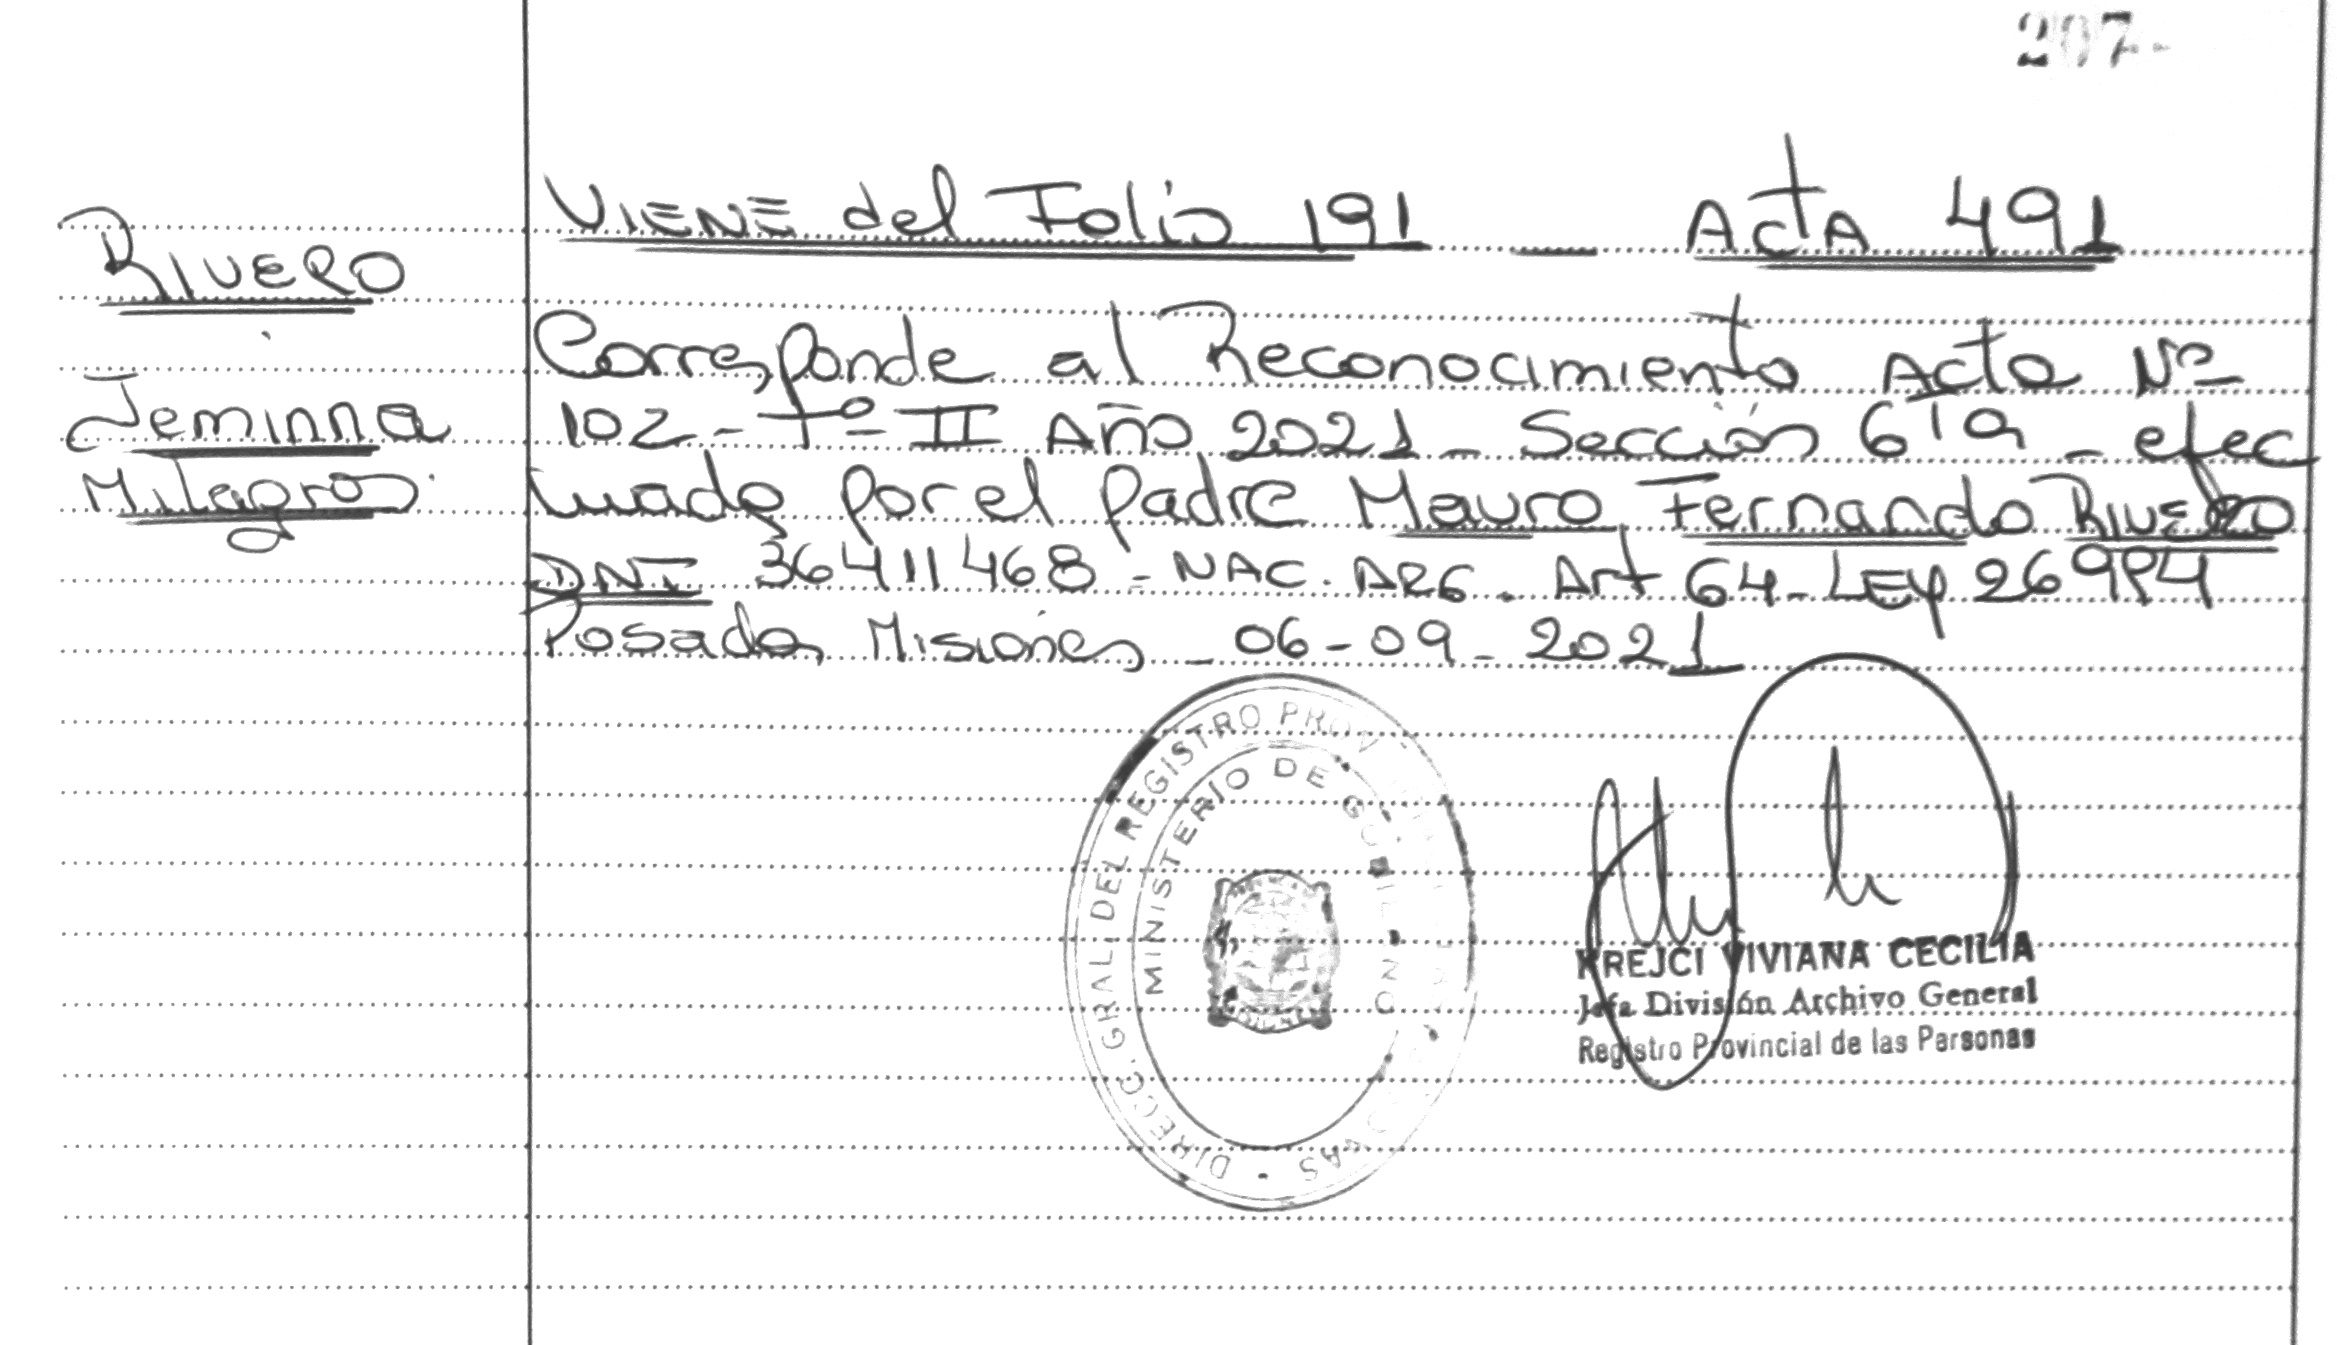 207-
RIVERO
Jeminna
Milagros
VIENE del Folio 191 — ActA 491
Corresponde al Reconocimiento Acta Nº
102 - Tº II Año 2021 - Sección 6ta - efec
tuado por el padre Mauro Fernando RIVERO
DNI 36411468 - NAC. ARG. Art 64 - LEY 26994
Posadas Misiones - 06-09-2021
DIRECC. GRAL. DEL REGISTRO PROV
MINISTERIO DE GOBIERNO
KREJCI VIVIANA CECILIA
Jefa División Archivo General
Registro Provincial de las Personas